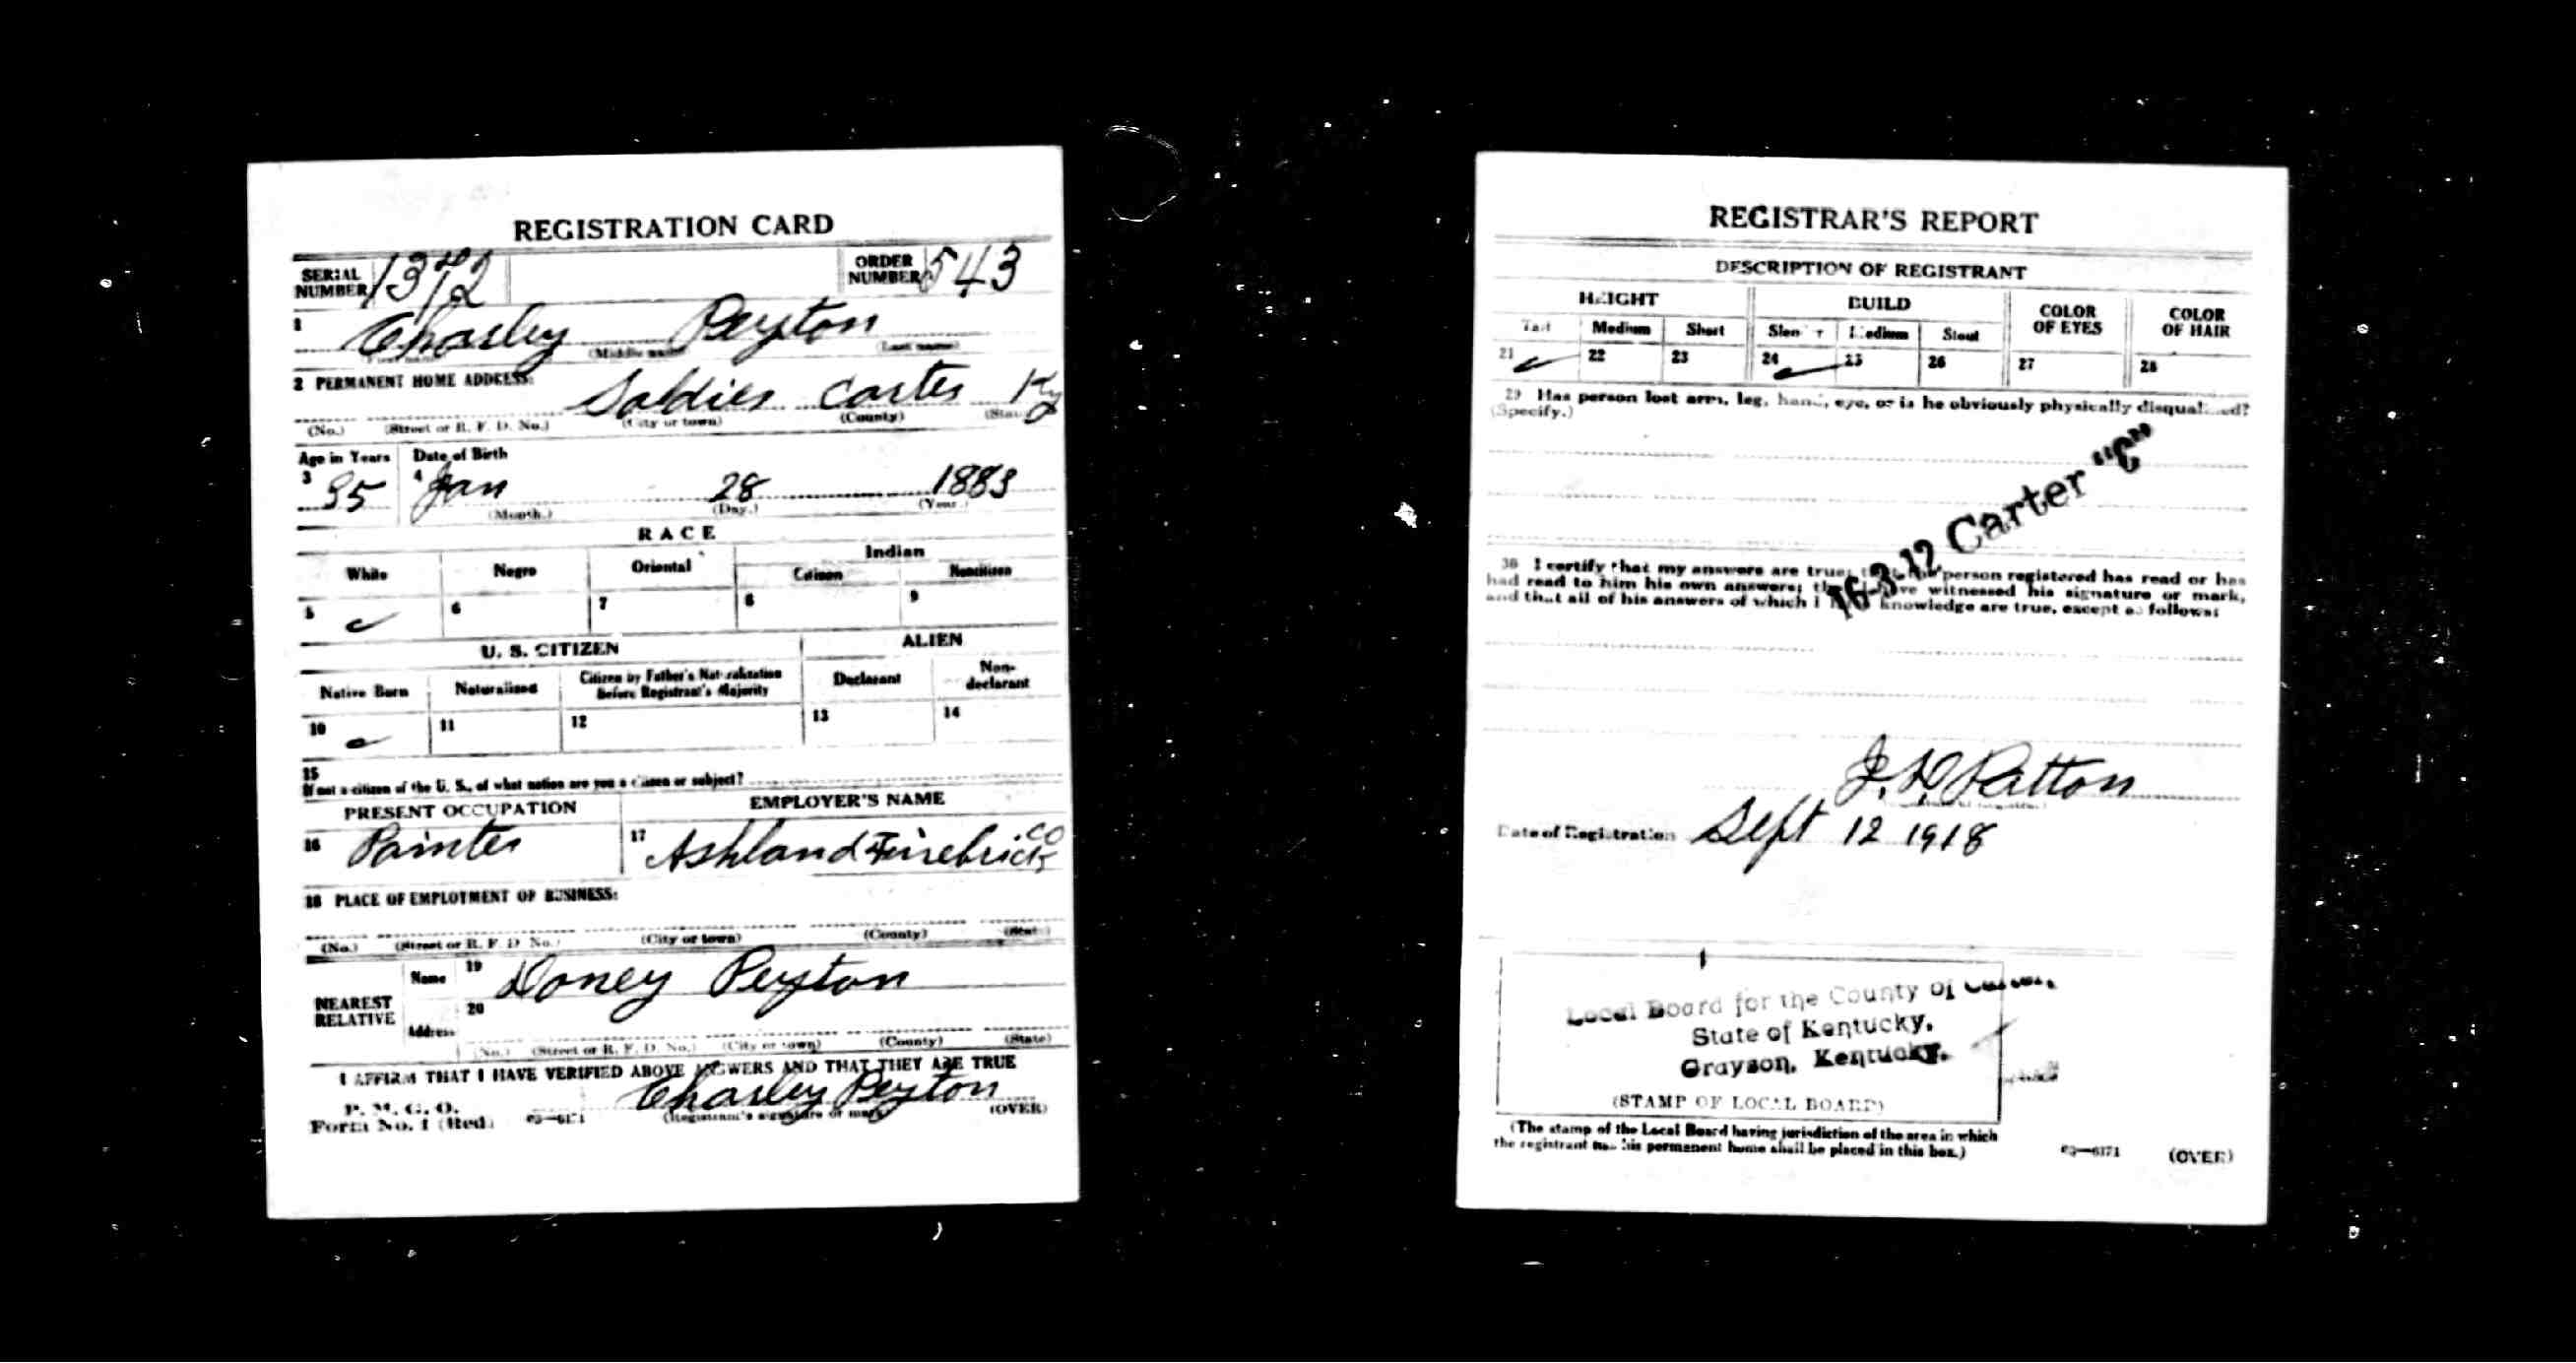 REGISTRATION CARD
SERIAL NUMBER 1372 ORDER NUMBER 543
1 Charley Peyton
(Middle name) (Last name)
2 PERMANENT HOME ADDRESS:
Soldier Carter Ky
(No.) (Street or R. F. D. No.) (City or town) (County) (State)
Age in Years Date of Birth
3 35 4 Jan 28 1883
(Month.) (Day.) (Year.)
RACE
White Negro Oriental Indian
Citizen Noncitizen
5 6 7 8 9
U. S. CITIZEN ALIEN
Native Born Naturalized Citizen by Father's Naturalization Before Registrant's Majority Declarant Non-declarant
10 11 12 13 14
15
If not a citizen of the U. S., of what nation are you a citizen or subject?
PRESENT OCCUPATION EMPLOYER'S NAME
16 Painter 17 Ashland Firebrick Co
18 PLACE OF EMPLOYMENT OR BUSINESS:
(No.) (Street or R. F. D. No.) (City or town) (County) (State)
NEAREST RELATIVE Name 19 Doney Peyton
Address 20
(No.) (Street or R. F. D. No.) (City or town) (County) (State)
I AFFIRM THAT I HAVE VERIFIED ABOVE ANSWERS AND THAT THEY ARE TRUE
P. M. G. O.
Form No. 1 (Red) 03—6171 Charley Peyton
(Registrant's signature or mark) (OVER)
REGISTRAR'S REPORT
DESCRIPTION OF REGISTRANT
HEIGHT BUILD COLOR OF EYES COLOR OF HAIR
Tall Medium Short Slender Medium Stout
21 22 23 24 25 26 27 28
29 Has person lost arm, leg, hand, eye, or is he obviously physically disqualified?
(Specify.)
16-3-12 Carter "C"
30 I certify that my answers are true; that the person registered has read or has
had read to him his own answers; that I have witnessed his signature or mark,
and that all of his answers of which I have knowledge are true, except as follows:
Patton
Date of Registration Sept 12 1918
Local Board for the County of Carter,
State of Kentucky,
Grayson, Kentucky.
(STAMP OF LOCAL BOARD)
(The stamp of the Local Board having jurisdiction of the area in which
the registrant has his permanent home shall be placed in this box.)
03—6171 (OVER)